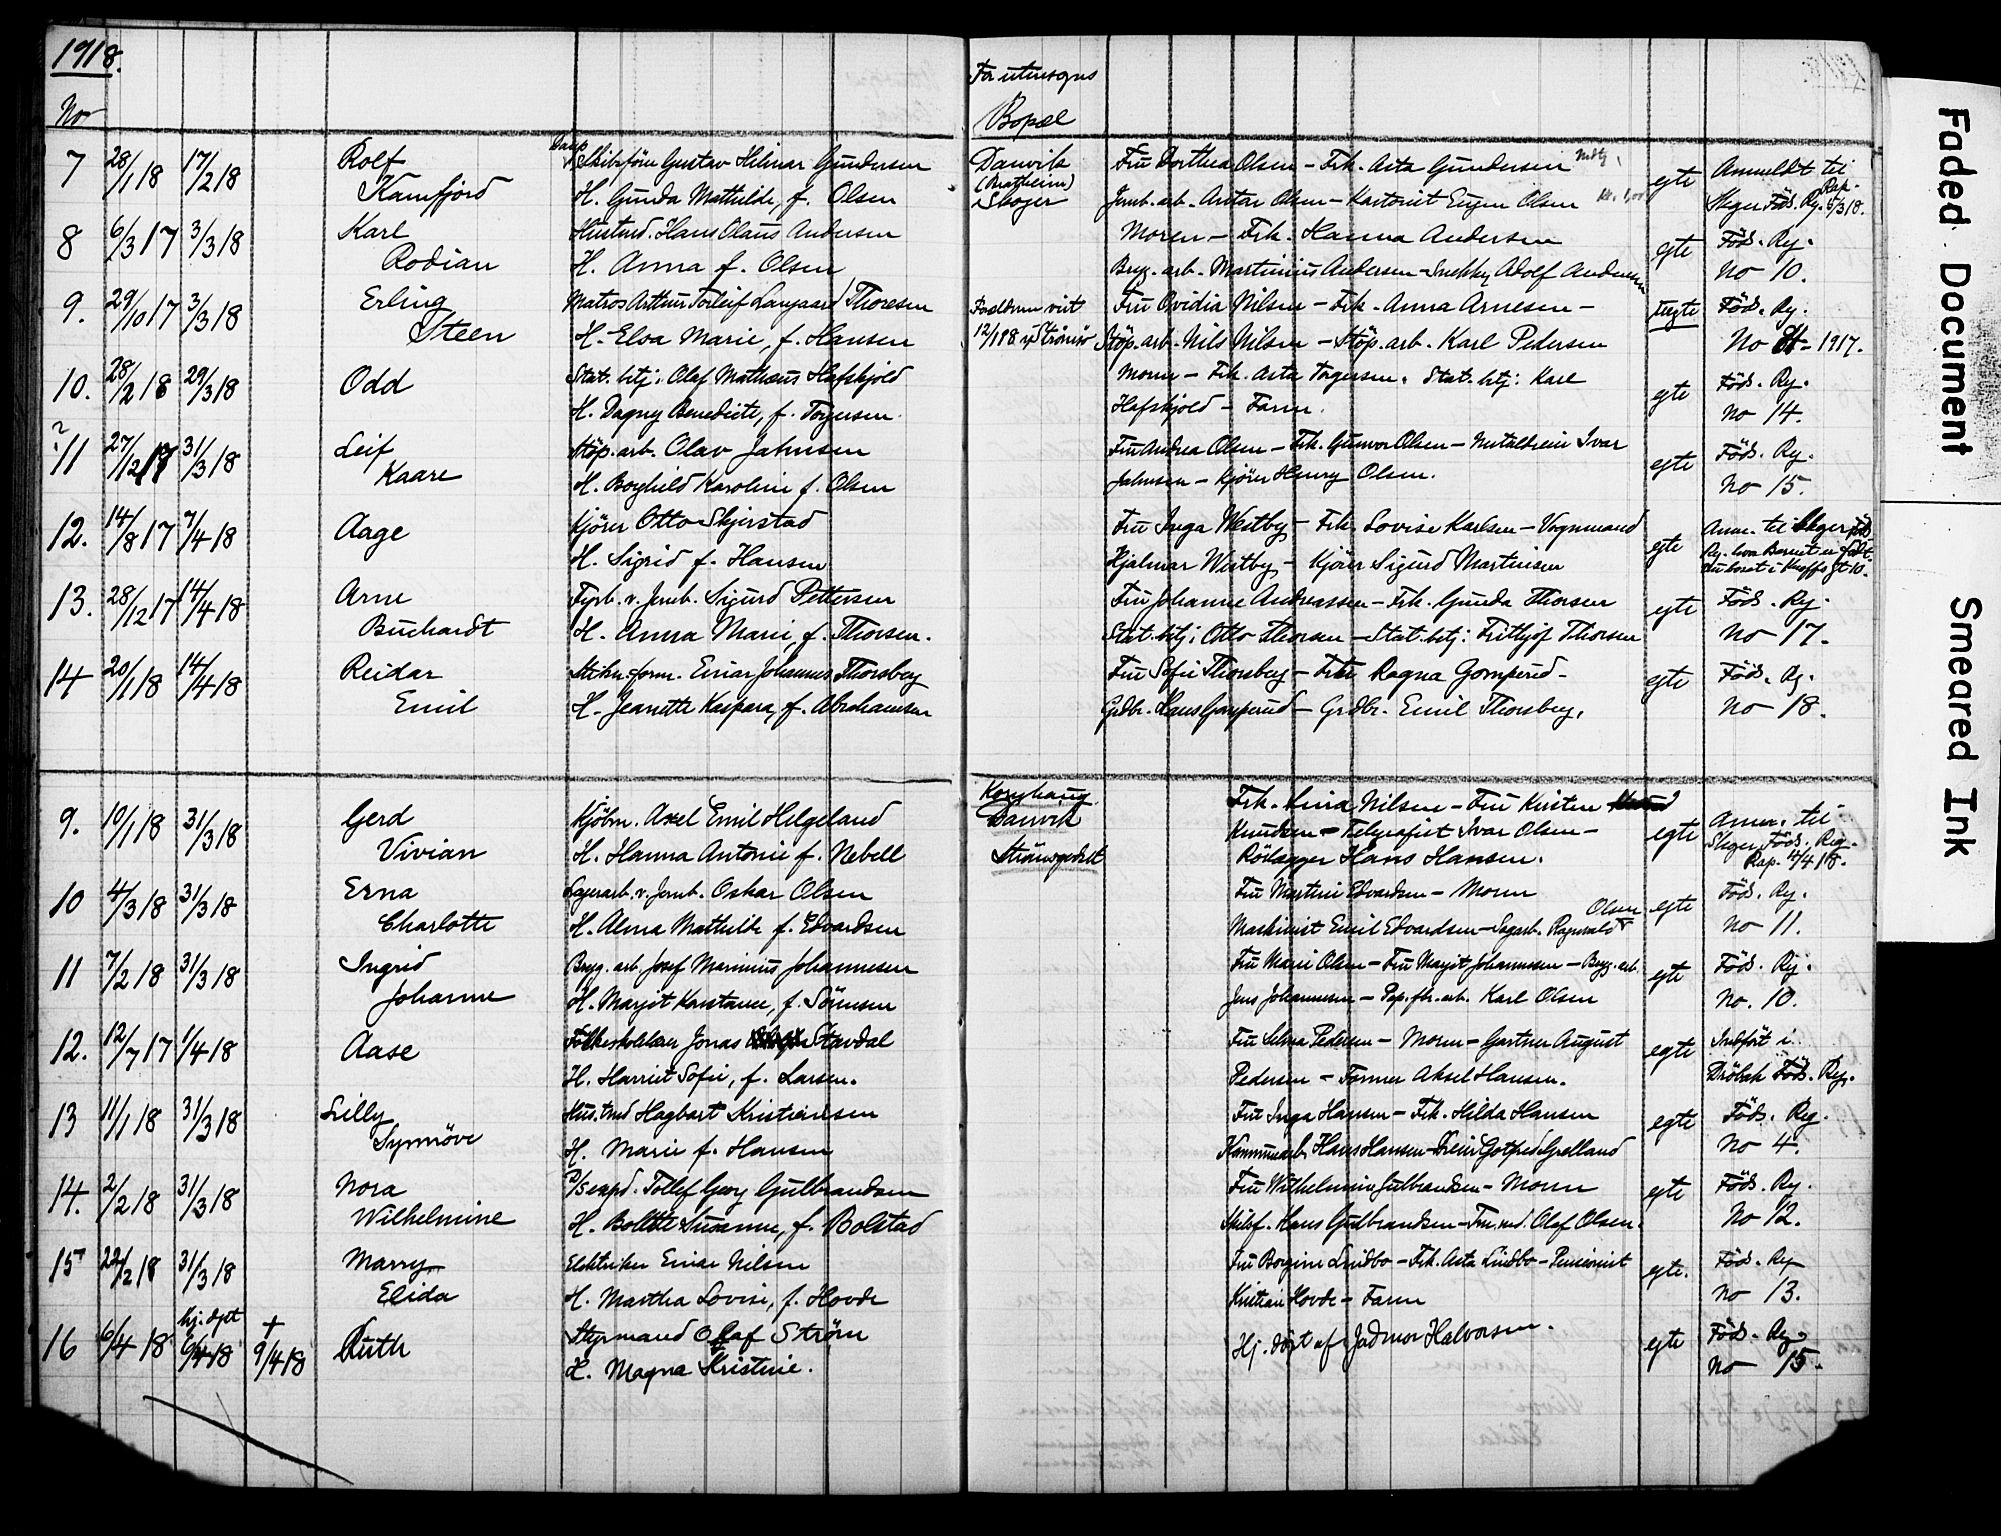 1918.
No
For utensogns
Bopæl
7 28/1 18 17/2 18 Rolf Kamfjord
Skibsförer Gustav Hilmar Gundersen
H. Gunda Mathilde, f. Olsen
Danvik
Skoger
Fru Dorthea Olsen - Frk. Asta Gundersen
Jernb. arb. Anton Olsen - Kartonist Eugen Olsen
egte
Anmeldt til
Skoger Föds. Rg. Rap. 5/3 18.
8 6/3 17 3/3 18 Karl Rodian
Hustmd. Hans Olaus Andersen
H. Anna f. Olsen
Moren - Frk. Hanna Andersen
Bryg. arb. Martinius Andersen - Snekker Adolf Andersen
egte
Föds. Rg.
No 10.
9. 29/10 17 3/3 18 Erling Steen
Matros Arthur Torleif Langaard Thoresen
H. Elsa Marie, f. Hansen
Foreldrene viet
12/1 18 i Strömsö
Fru Ovidia Nilsen - Frk. Anna Arnesen -
Stöp. arb. Nils Nilsen - Stöp. arb. Karl Pedersen
uegte
Föds. Rg.
No 1917.
10. 28/2 18 29/3 18 Odd
Stat. btj. Olaf Mathæus Hafskjold
H. Dagny Benedicte, f. Torgersen.
Moren - Frk. Asta Torgersen. Stat. btj: Karl
Hafskjold - Faren.
egte
Föds. Rg.
No 14.
? 11 27/12 17 31/3 18 Leif Kaare
Stöp. arb. Olav Jahnsen
H. Borghild Karoline f. Olsen
Fru Andrea Olsen - Frk. Gunvor Olsen - Metaldreier Ivar
Jahnsen - Kjörer Henry Olsen.
egte
Föds. Rg.
No 15.
12. 14/8 17 7/4 18 Aage
Kjörer Otto Skjerstad
H. Sigrid f. Hansen
Fru Inga Westby - Frk. Lovise Karlsen - Vognmand
Hjalmar Westby - Kjörer Sigurd Martinsen
egte
Anm. til Skoger Föds.
Rg. hvor Barnet er född.
13. 28/12 17 14/4 18 Arne Buchardt
Fyrb. v. Jernb. Sigurd Pettersen
H. Anna Marie, f. Thorsen.
Fru Johanne Andreassen - Frk. Gunda Thorsen
Stat. btj: Otto Thorsen - Stat. btj: Frithjof Thorsen
egte
Föds. Rg.
No 17.
14 20/1 18 14/4 18 Reidar Emil
Einar Johannes Thorsberg
H. Jeanette Kaspara, f. Abrahamsen
Fru Sofie Thorsberg - Frk. Ragna Gomperud -
Grdbr. Hans Gomperud - Grdbr. Emil Thorsberg.
egte
Föds. Rg.
No 18.
9. 10/1 18 31/3 18 Gerd Vivian
Kjöbm. Axel Emil Helgeland
H. Hanna Antonie f. Nebell
Danvik
Strömsgodset
Frk. Lina Nilsen - Fru Kirsten
Knudsen - Telegrafist Ivar Olsen -
Rörlægger Hans Hansen.
egte
Anm. til
Skoger Föds. Rg.
Rap. 12/4 18.
10 4/3 18 31/3 18 Erna Charlotte
Lagerarb. v. Jernb. Oskar Olsen
H. Alma Mathilde f. Edvardsen
Fru Martine Edvardsen - Moren
Maskinist Emil Edvardsen - Sagarb. Ragnvald Olsen
egte
Föds. Rg.
No 11.
11 7/2 18 31/3 18 Ingrid Johanne
Bryg. arb. Josef Marinius Johannesen
H. Margit Konstance, f. Sörensen
Fru Marie Olsen - Fru Margit Johannesen - Bryg. arb.
Jens Johannesen - Pap. fbr. arb. Karl Olsen
egte
Föds. Rg.
No. 10.
12. 12/7 17 1/4 18 Aase
Folkeskolelærer Jonas Stavdal
H. Harriet Sofie, f. Larsen.
Fru Selma Pedersen - Moren - Gartner August
Pedersen - Former Aksel Hansen.
egte
Indfört i
Dröbak Föds. Rg.
13 11/1 18 31/3 18 Lilly Synnöve
Hustmd Hagbart Kristiansen
H. Marie f. Hansen
Fru Inga Hansen - Frk. Hilda Hansen
Kommunearb. Hans Hansen - Dreier Gotfred Gjelland
egte
Föds. Rg.
No 4.
14. 2/2 18 31/3 18 Nora Wilhelmine
Tollef Georg Gulbrandsen
H. Bolette Susanne, f. Bolstad
Fru Wilhelmine Gulbrandsen - Moren
Skibsf. Hans Gulbrandsen - Olaf Olsen.
egte
Föds. Rg.
No 12.
15 22/2 18 31/3 18 Marry Elida
Elektriker Einar Nilsen
H. Martha Lovise, f. Hovde
Fru Borgine Lindbo - Frk. Asta Lindbo - Pensionist
Kristian Hovde - Faren
egte.
Föds. Rg
No 13.
16 6/4 18 hj. döpt 6/4 18 + 9/4 18 Ruth
Styrmand Olaf Ström
H. Magna Kristine.
Hj. döpt af Jordmor Halvorsen.
egte
Föds. Rg.
No 15.
Faded Document
Smeared Ink